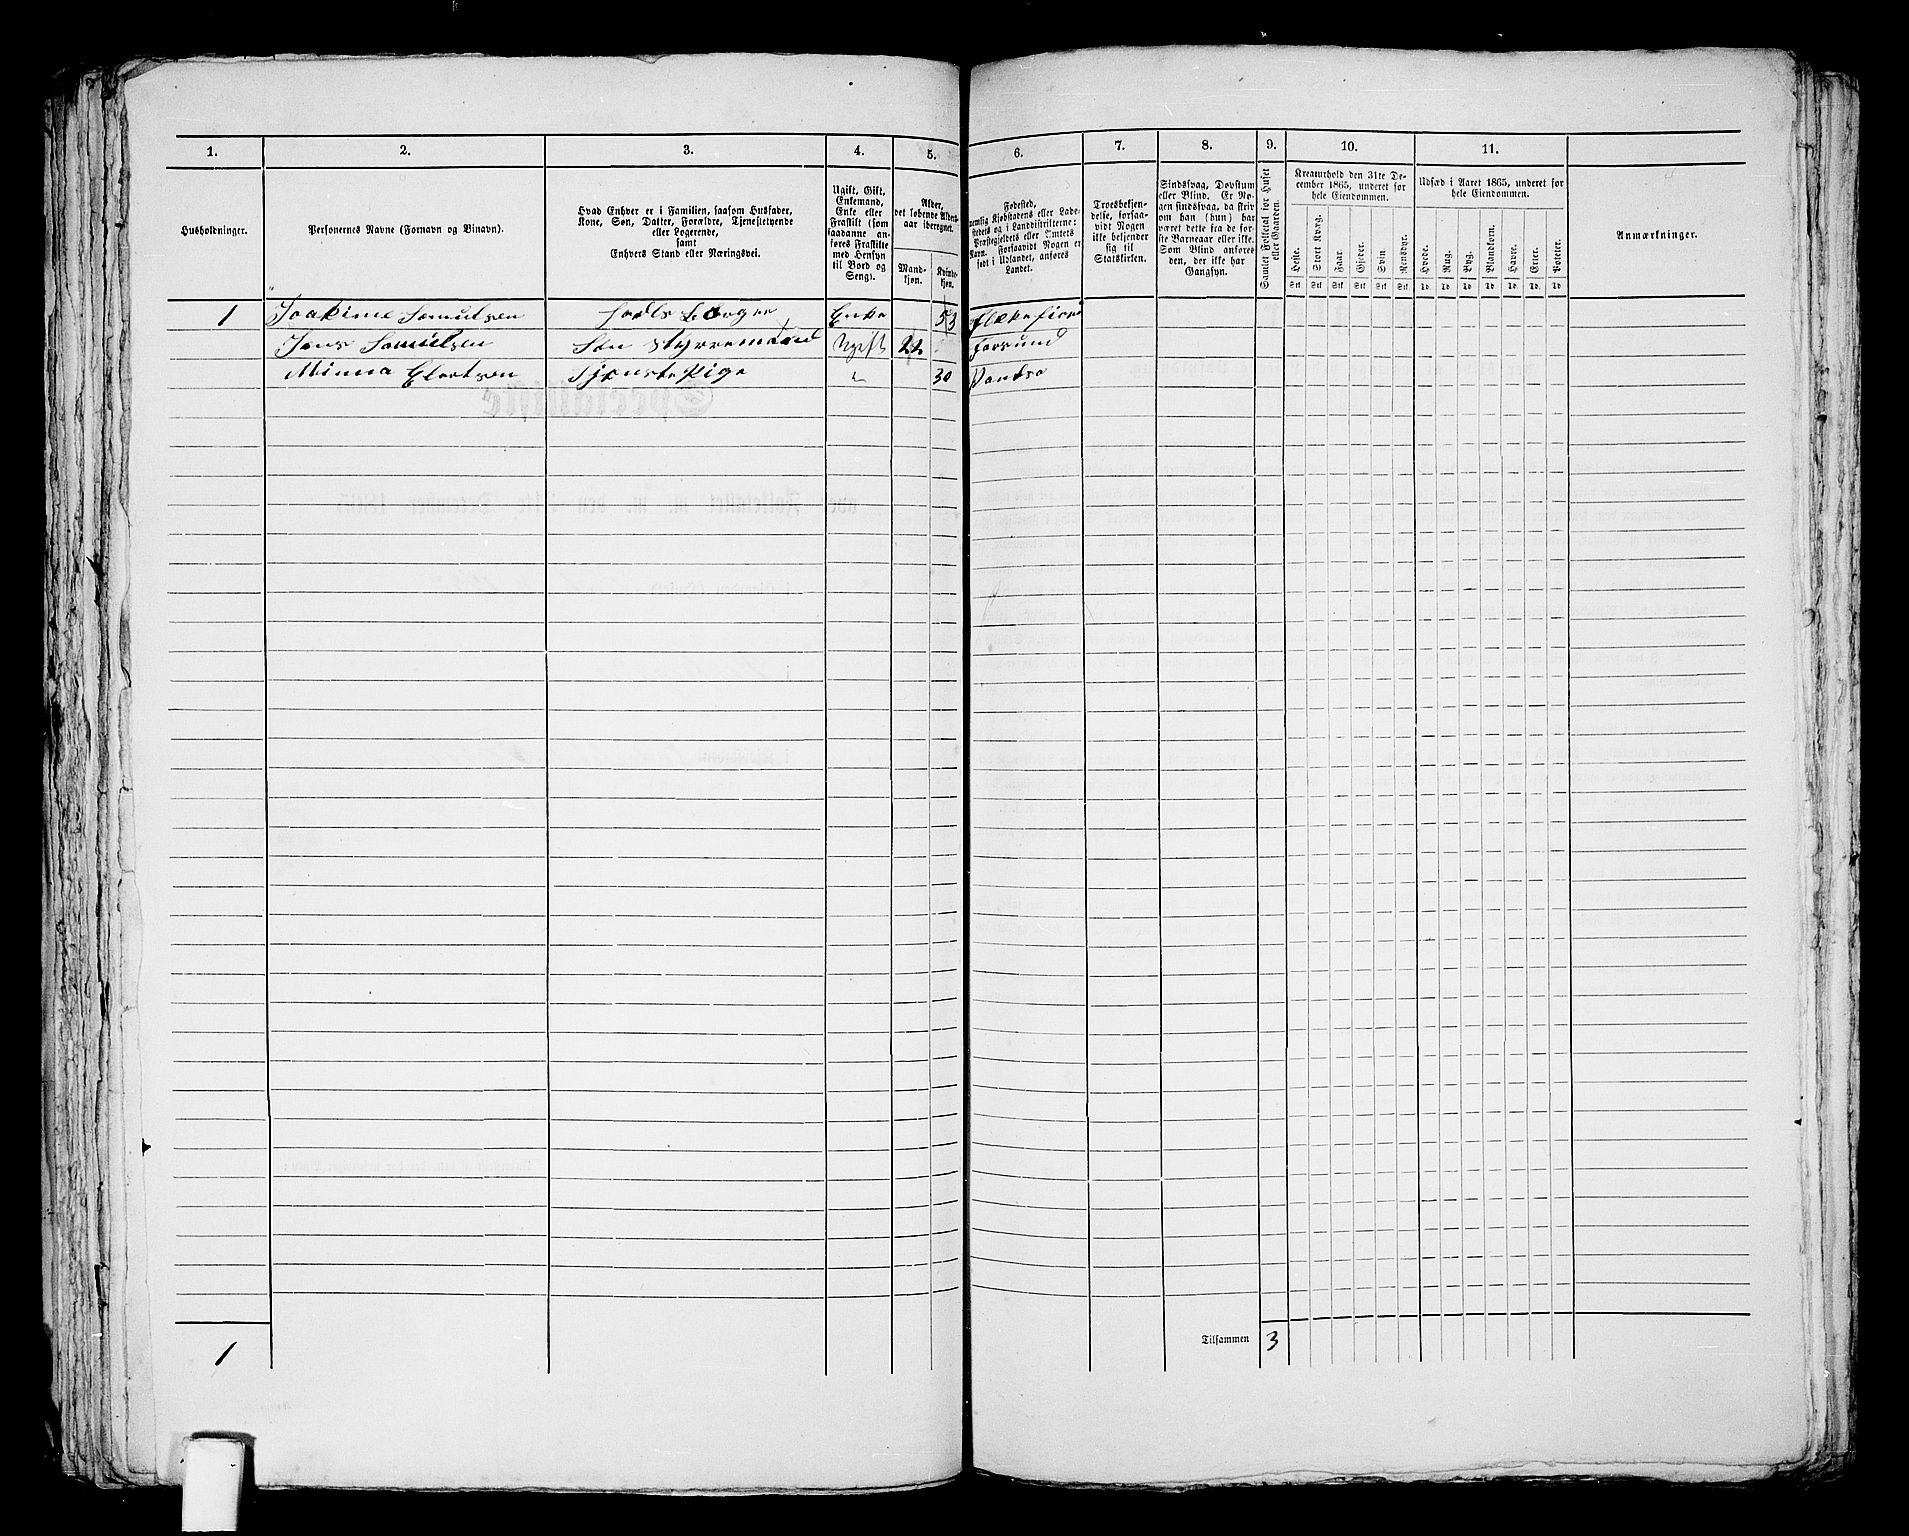 1. 2. 3. 4. 5. 6. 7. 8. 9. 10. 11.
Husholdninger.
Personernes Navne (Fornavn og Binavn).
Hvad Enhver er i Familien, saasom Husfader,
Kone, Søn, Datter, Forældre, Tjenestetyende
eller Logerende,
samt
Enhvers Stand eller Næringsvei.
Ugift, Gift,
Enkemand,
Enke eller
Fraskilt (som
saadanne an-
føres Fraskilte
med Hensyn
til Bord og
Seng).
Alder,
det løbende Alders-
aar iberegnet.
Mand-
kjøn.
Kvinde-
kjøn.
Fødested,
nemlig Kjøbstadens eller Lade-
stedets og i Landdistrikterne:
Præstegjeldets eller Amtets
Navn. Forsaavidt Nogen er
født i Udlandet, anføres
Landet.
Troesbekjen-
delse, forsaa-
vidt Nogen
ikke bekjender
sig til
Statskirken.
Sindssvag, Døvstum
eller Blind. Er No-
gen sindssvag, da skriv
om han (hun) har
været dette fra de før-
ste Barneaar eller ikke.
Som Blind anføres
den, der ikke har
Gangsyn.
Samlet Folketal for Huset
eller Gaarden.
Kreaturhold den 31te De-
cember 1865, underet for
hele Eiendommen.
Heste. Stort Kvæg. Faar. Gjeder. Svin. Rensdyr.
Stk Stk Stk Stk Stk Stk
Udsæd i Aaret 1865, underet for
hele Eiendommen.
Hvede. Rug. Byg. Blandkorn. Havre. Erter. Poteter.
Td Td Td Td Td Td Td
Anmærkninger.
1 Joakime Samulsen Enke 53
Jens Samuelsen Søn Styrremand Ugift 22 Farsund
Minna Elertsen Tjenste Pige " 30 Vandsø
Tilsammen 3
1